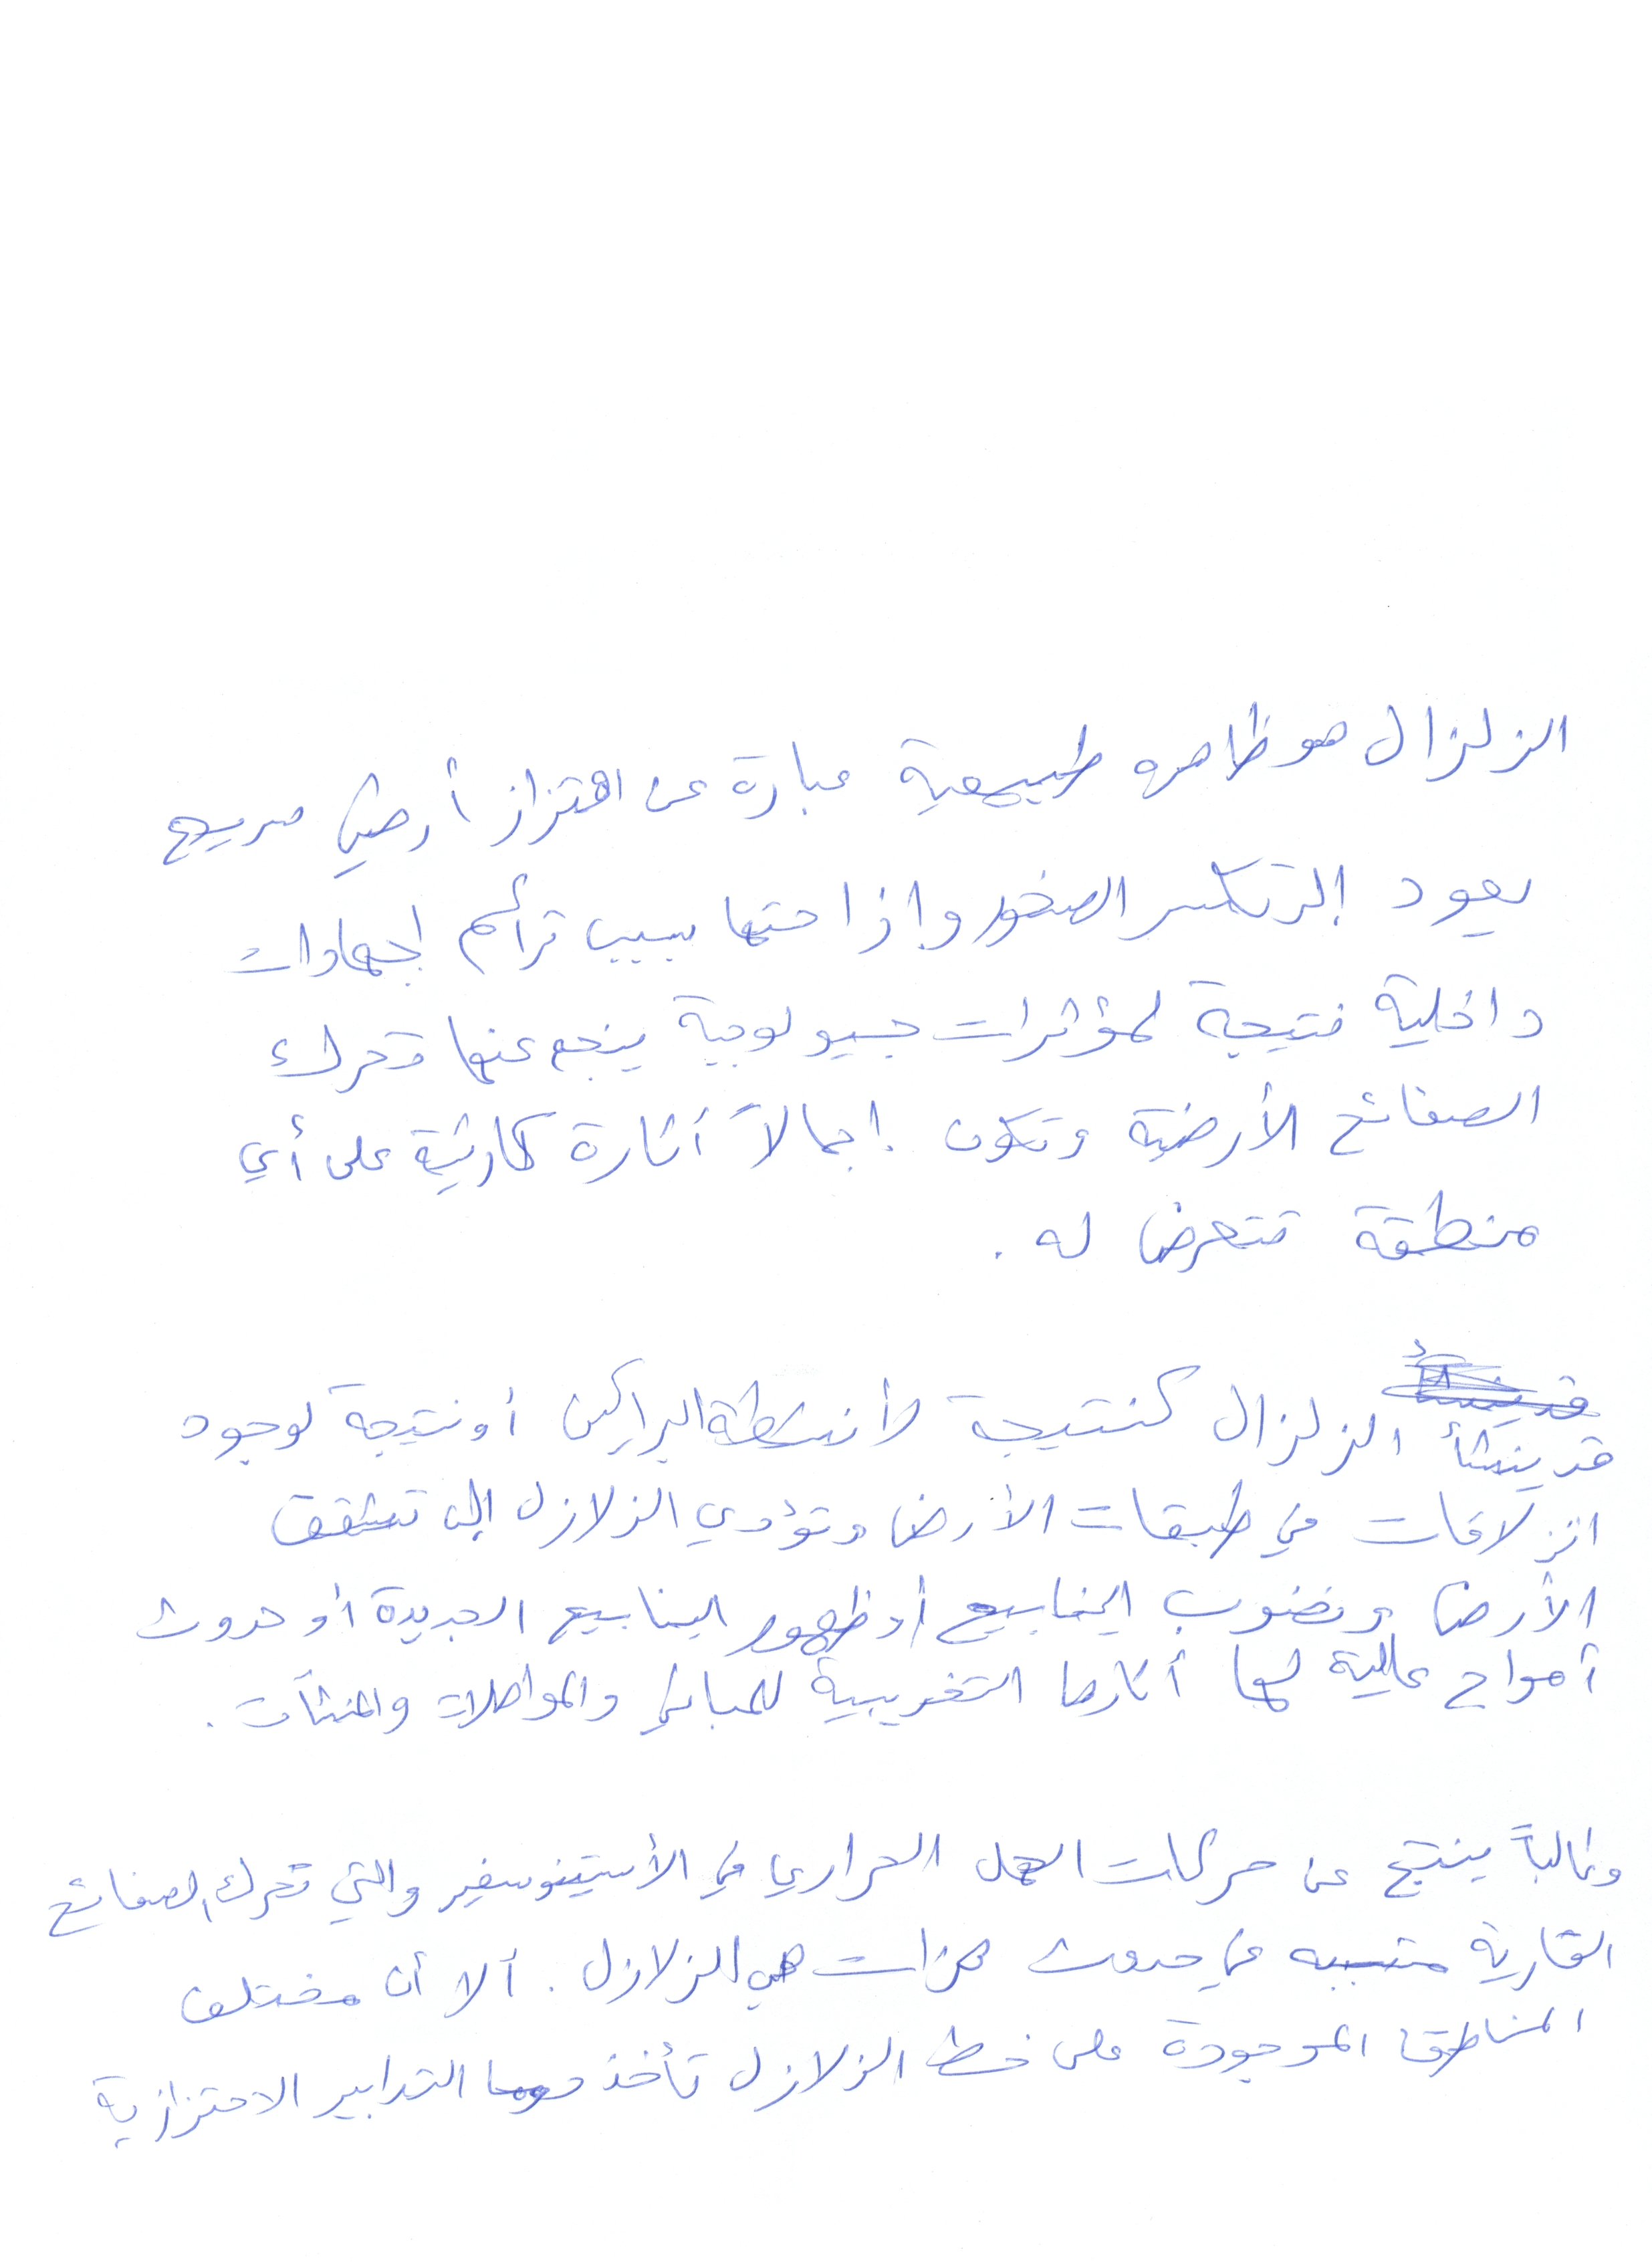 الزلزال هو ظاهره طبيعية عبارة عن اهتزاز أرضي سريع
يعود إلى تكسر الصخور وإزاحتها بسبب ترأكم إجهادات
داخلية نتيجة لمؤثرات جيولوجية ينجم عنها تحرك
الصفائح الأرضية وتكون إجمالاً أثارة كارثية على أي
منطقة تتعرض له .
قد ينشأ الزلزال كنتيجة لأنشطة البراكين أو نتيجة لوجود
انزلاقات في طبقات الأرض وتؤدي الزلازل إلى تشقق
الأرض ونضوب الينابيع أو ظهور الينابيع الجديدة أو حدوث
أمواج عالية لها أثارها التخريبية للمباني والمواصلات والمنشآت .
وغالباً ينتج عن حركات الحمل الحراري في الأستينوسفير والتي تحرك الصفائح
القارية متسببه في حدوث هزات هي الزلازل . ألا أن مختلف
المناطق الموجودة على خط الزلازل تأخذ دوما التدابير الاحتزازية